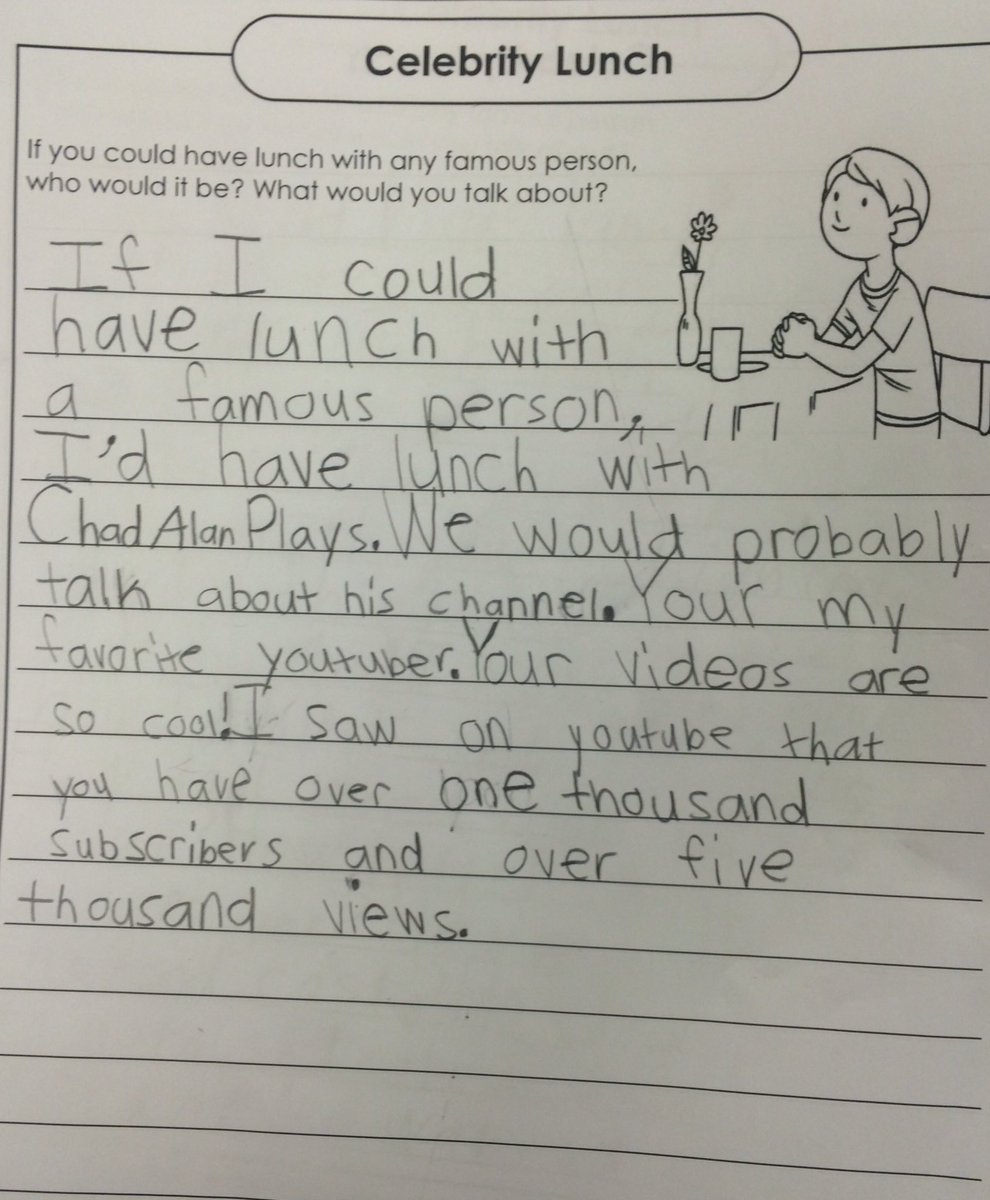 Celebrity Lunch
If you could have lunch with any famous person,
who would it be? What would you talk about?
If I could
have lunch with
a famous person,
I'd have lunch with
ChadAlanPlays. We would probably
talk about his channel. Your my
favorite youtuber. Your videos are
so cool! I saw on youtube that
you have over one thousand
subscribers and over five
thousand views.